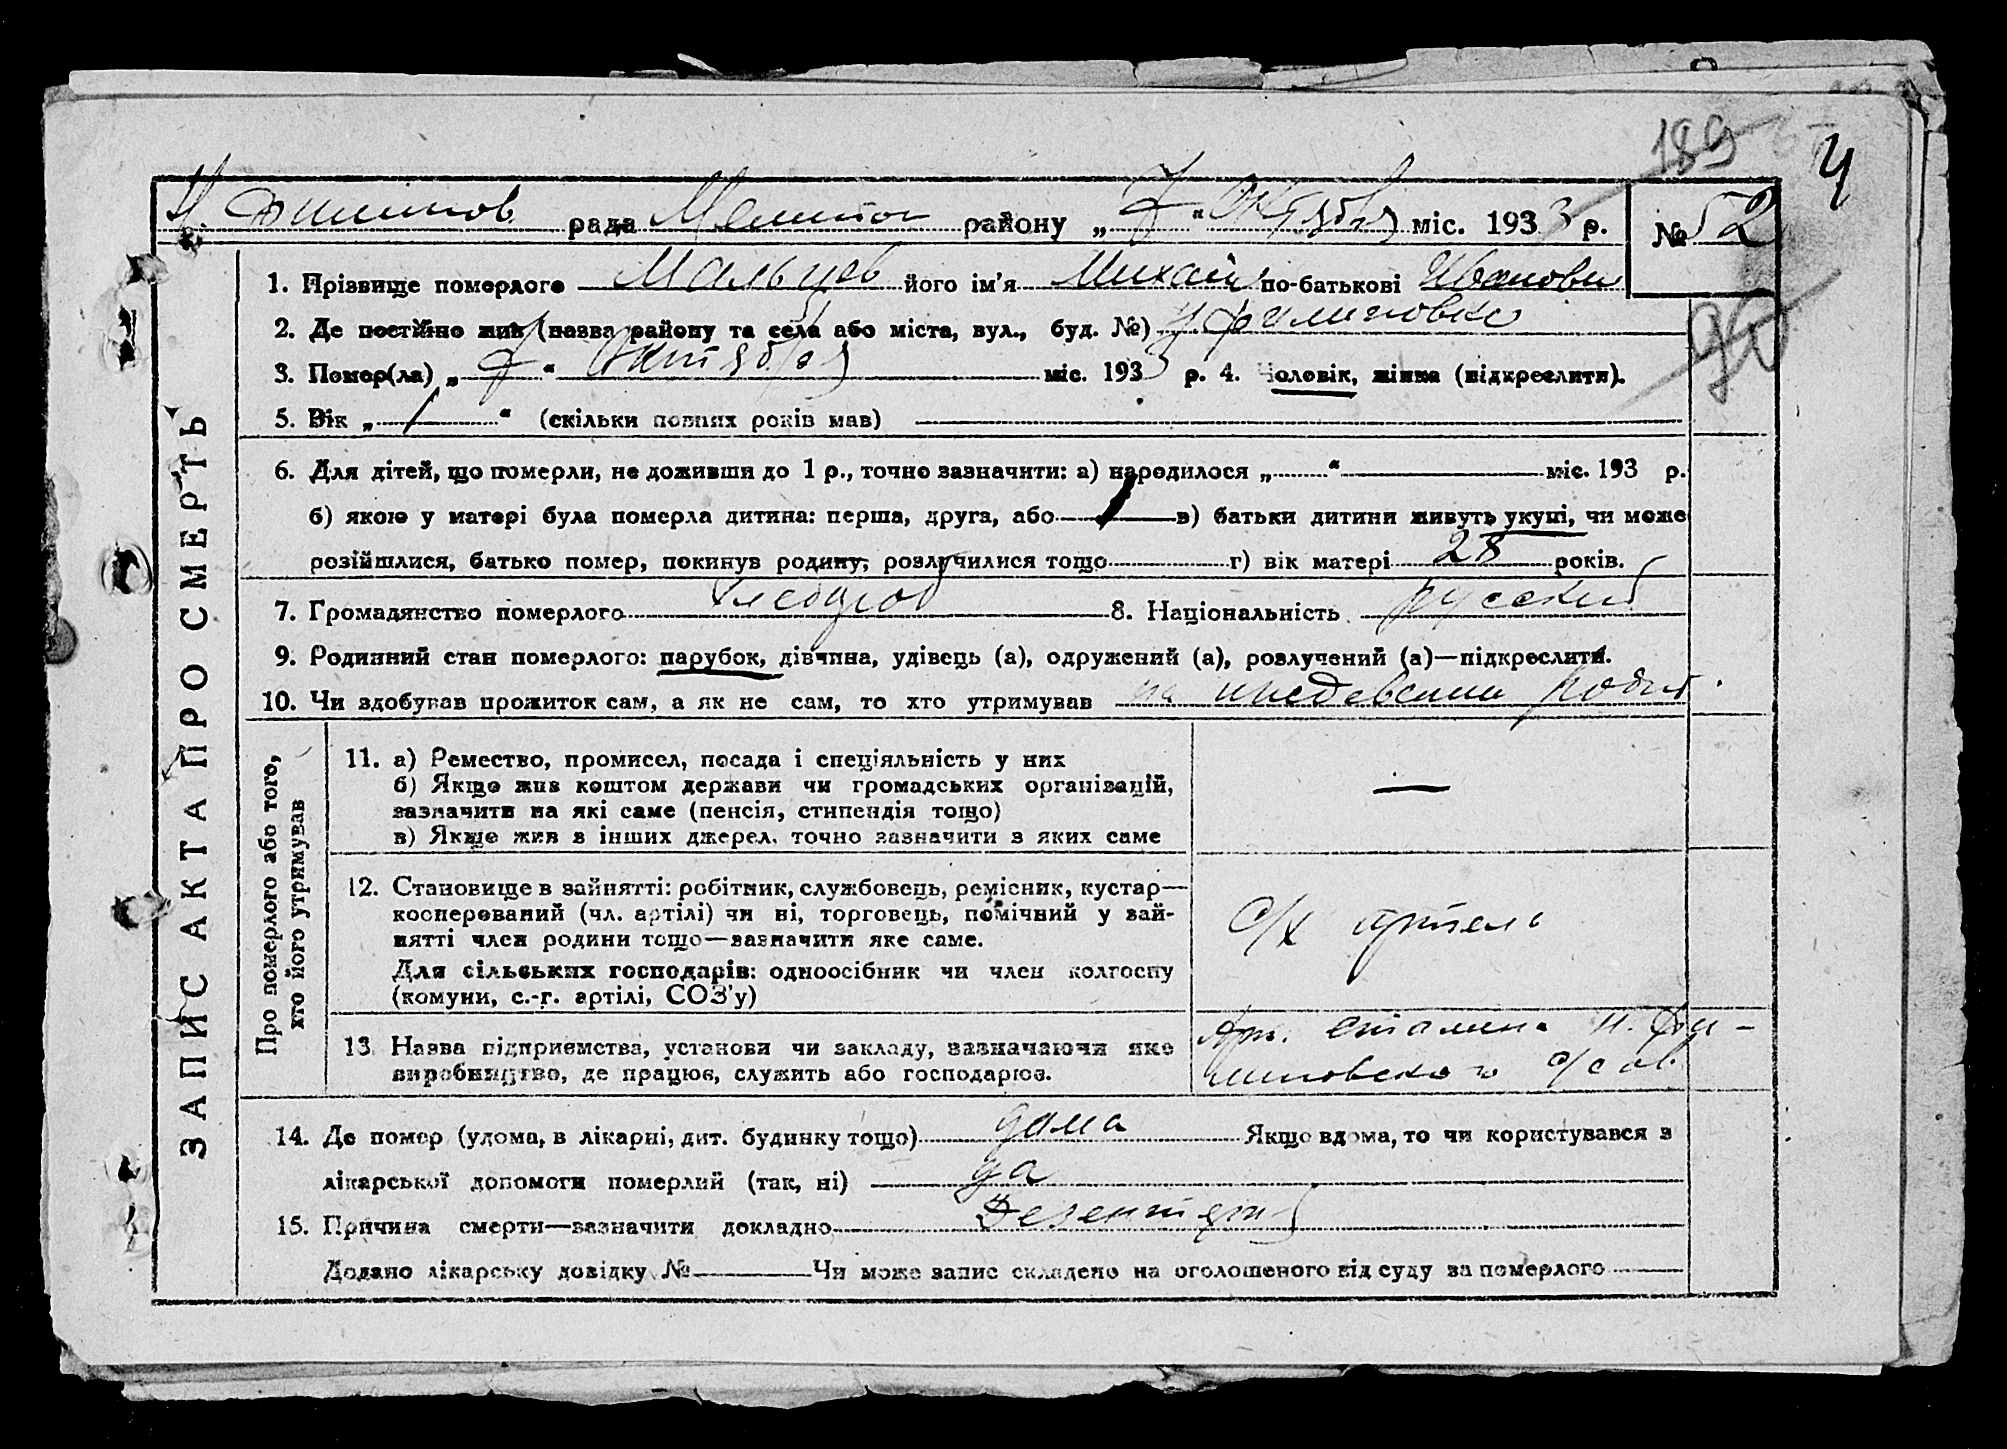 189
4
Н. Филипов. рада Мелитоп району „ 7 “ Октября міс. 1933 р. № 52
90
ЗАПИС АКТА ПРО СМЕРТЬ
1. Прізвище померлого Мальцев його ім'я Михаил по-батькові Иванови
2. Де постійно жив (назва району та села або міста, вул., буд. №) Н Филиповка
3. Помер(ла) „ 7 “ Октября міс. 1933 р. 4. Чоловік, жінка (підкреслити).
5. Вік „ 1 “ (скільки повних років мав)
6. Для дітей, що померли, не доживши до 1 р., точно зазначити: а) народилося „ “ міс. 193 р.
б) якою у матері була померла дитина: перша, друга, або 1 в) батьки дитини живуть укупі, чи може
розійшлися, батько помер, покинув родину, розлучилися тощо г) вік матері 28 років.
7. Громадянство померлого 8. Національність русский
9. Родинний стан померлого: парубок, дівчина, удівець (а), одружений (а), розлучений (а)—підкреслити.
10. Чи здобував прожиток сам, а як не сам, то хто утримував на иждевении родит.
Про померлого або того,
хто його утримував
11. а) Ремество, промисел, посада і спеціяльність у них
б) Якщо жив коштом держави чи громадських організацій,
зазначити на які саме (пенсія, стипендія тощо)
в) Якщо жив з інших джерел, точно зазначити з яких саме
—
12. Становище в зайнятті: робітник, службовець, ремісник, кустар—
кооперований (чл. артілі) чи ні, торговець, помічний у зай-
нятті член родини тощо—зазначити яке саме.
Для сільських господарів: одноосібник чи член колгоспу
(комуни, с.-г. артілі, СОЗ'у)
С/х артель
13. Назва підприємства, установи чи закладу, зазначаючи яке
виробництво, де працює, служить або господарює.
Арт. Сталина Н. Фи-
липовского с/сов
14. Де помер (удома, в лікарні, дит. будинку тощо) дома Якщо вдома, то чи користувався з
лікарської допомоги померлий (так, ні) да
15. Причина смерти—зазначити докладно Дезентерий
Додано лікарську довідку № Чи може запис складено на оголошеного від суду за померлого